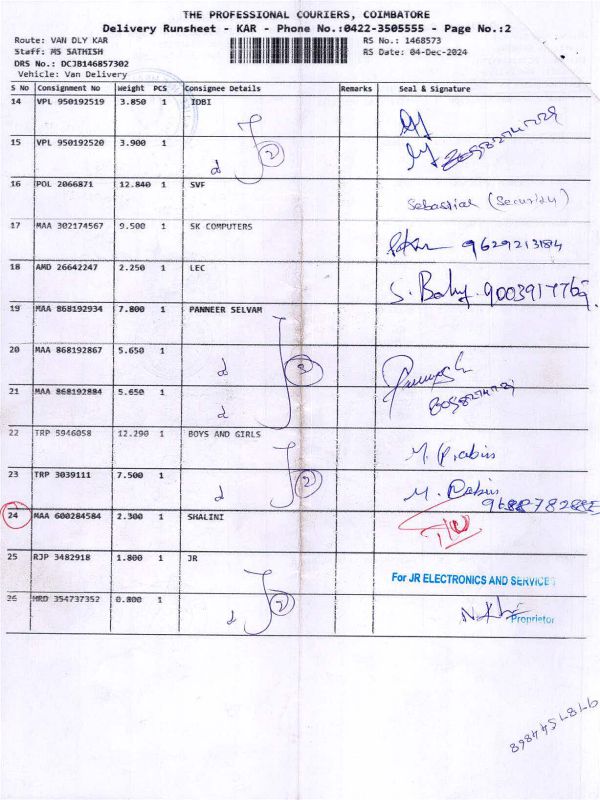 THE PROFESSIONAL COURIERS, COIMBATORE
Delivery Runsheet - KAR - Phone No.:0422-3505555 - Page No.:2
Route: VAN DLY KAR RS No.: 1468573
Staff: MS SATHISH RS Date: 04-Dec-2024
DRS No.: DCJB146857302
Vehicle: Van Delivery
S No Consignment No Weight PCS Consignee Details Remarks Seal & Signature
14 VPL 950192519 3.850 1 IDBI
15 VPL 950192520 3.900 1 d 2
16 POL 2066871 12.840 1 SVF Sebastian (Security)
17 MAA 302174567 9.500 1 SK COMPUTERS
18 AMD 26642247 2.250 1 LEC S. Baby. 9003917769
19 MAA 868192934 7.800 1 PANNEER SELVAM
20 MAA 868192867 5.650 1 d 3
21 MAA 868192884 5.650 1 d
22 TRP 5946058 12.290 1 BOYS AND GIRLS M. Prabin
23 TRP 3039111 7.500 1 d 2 M. Pabin
24 MAA 600284584 2.300 1 SHALINI
25 RJP 3482918 1.800 1 JR For JR ELECTRONICS AND SERVICE
26 MRD 354737352 0.800 1 d 2 Proprietor